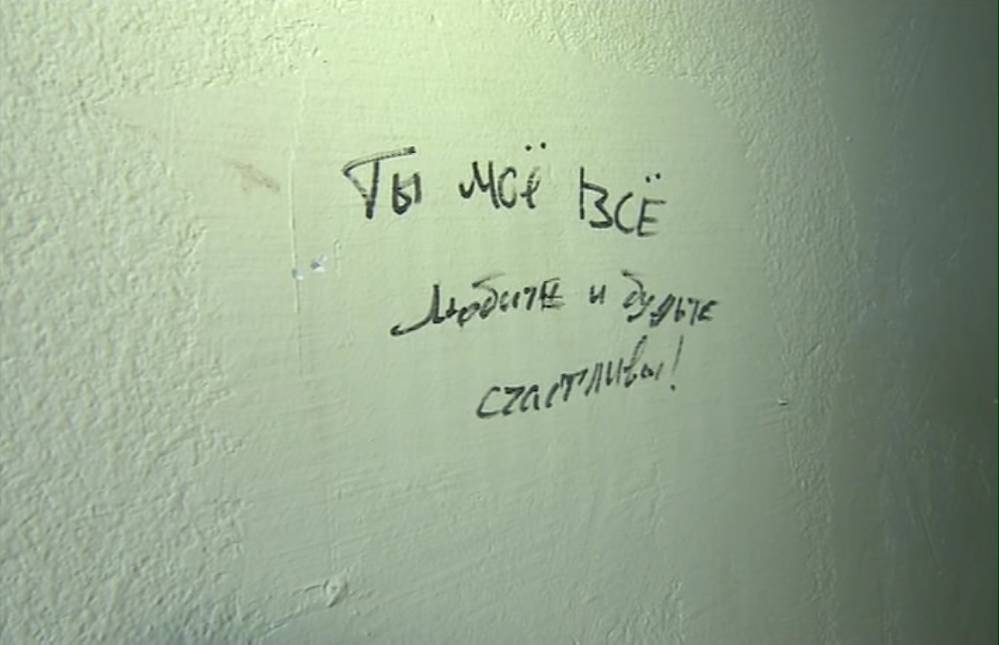 Ты моё ВСЁ
Любите и будьте
счастливы!